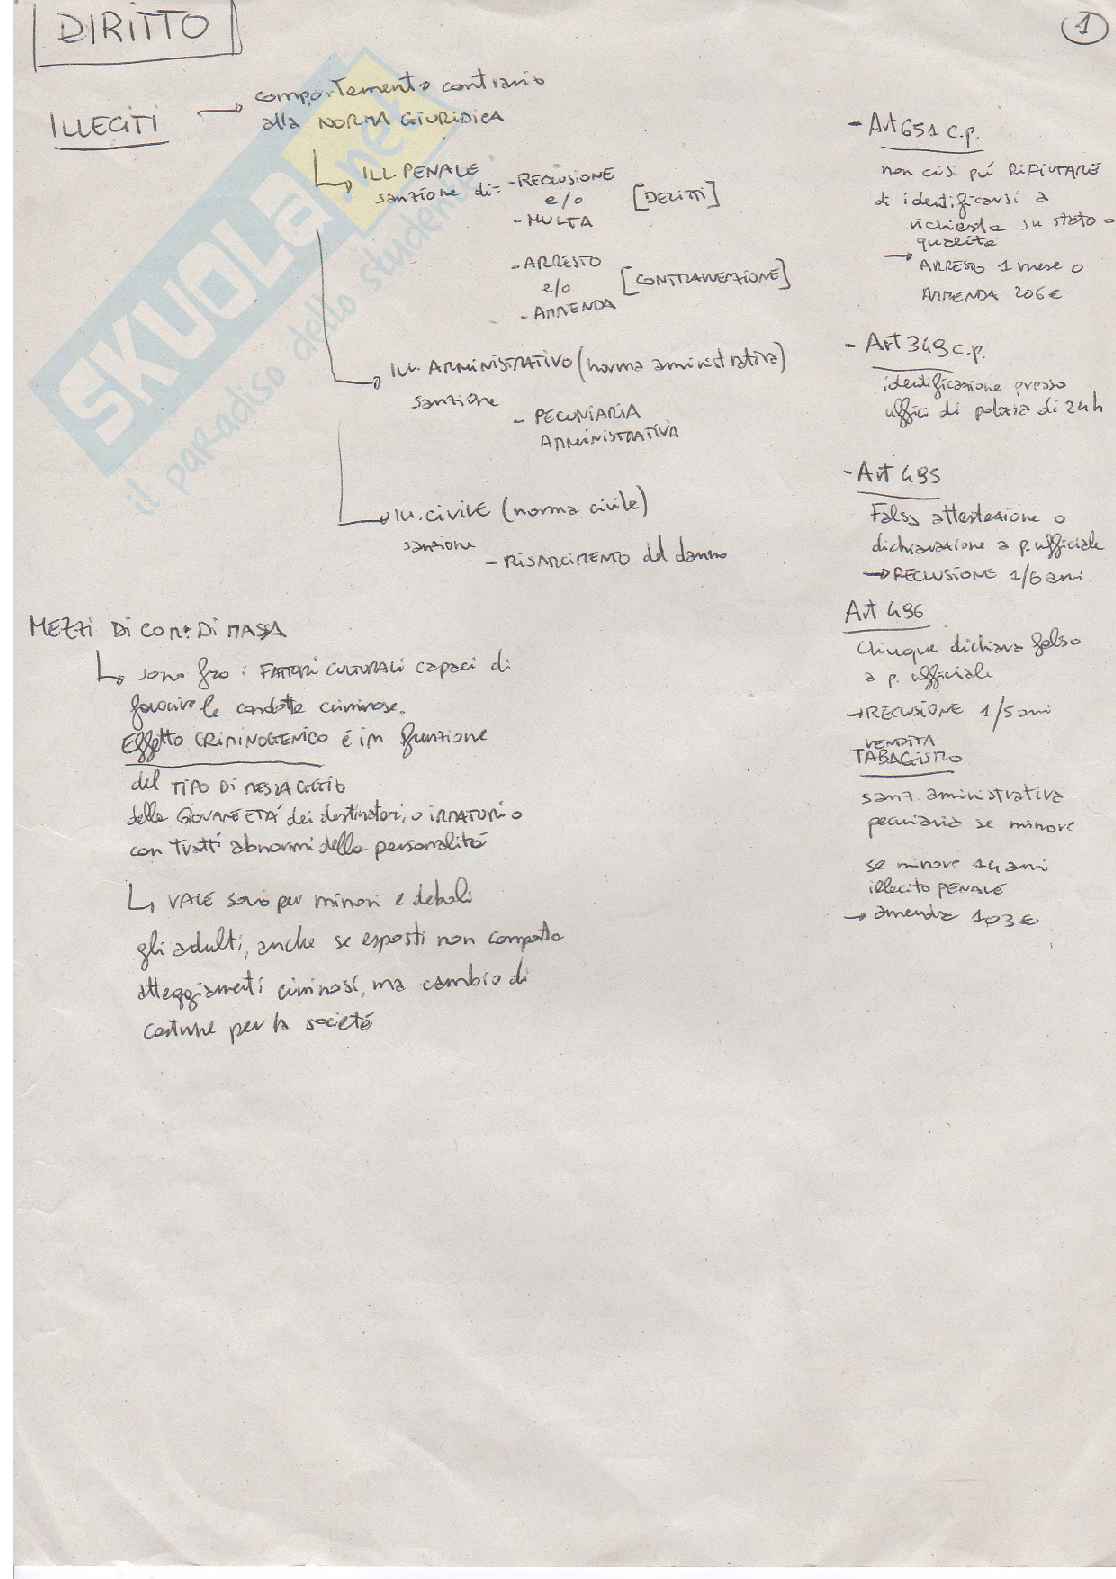 DIRITTO
1
ILLECITI → comportamento contrario
alla NORMA GIURIDICA
ILL. PENALE
sanzione di:
- RECLUSIONE
e/o
- MULTA
[DELITTI]
- ARRESTO
e/o
- AMMENDA
[CONTRAVVENZIONE]
ILL. AMMINISTRATIVO (norma aministrativa)
sanzione
- PECUNIARIA
AMMINISTRATIVA
ILL. CIVILE (norma civile)
sanzione
- RISARCIMENTO del danno
MEZZI DI COM. DI MASSA
sono fra i FATTORI CULTURALI capaci di
favorire le condotte criminose.
Effetto CRIMINOGENICO é in funzione
del TIPO DI MESSAGGIO
della GIOVANE ETÁ dei destinatari, o IMMATURI o
con tratti abnormi della personalitá
VALE solo per minori e deboli
gli adulti, anche se esposti non comporta
atteggiamenti criminosi, ma cambio di
costume per la societá
- Art 651 c.p.
non ci si puó RIFIUTARE
di identificarsi a
richiesta su stato o
qualità
→ ARRESTO 1 mese o
AMMENDA 206€
- Art 349 c.p.
identificazione presso
uffici di polizia di 24h
- Art 495
Falsa attestazione o
dichiarazione a p. ufficiale
→ RECLUSIONE 1/6 anni
Art 496
Chiunque dichiara falso
a p. ufficiale
→ RECLUSIONE 1/5 anni
VENDITA
TABAGISMO
sanz. aministrativa
pecuniaria se minore
se minore 14 anni
illecito PENALE
→ amenda 103€
SKUOLA.net
il paradiso dello studente